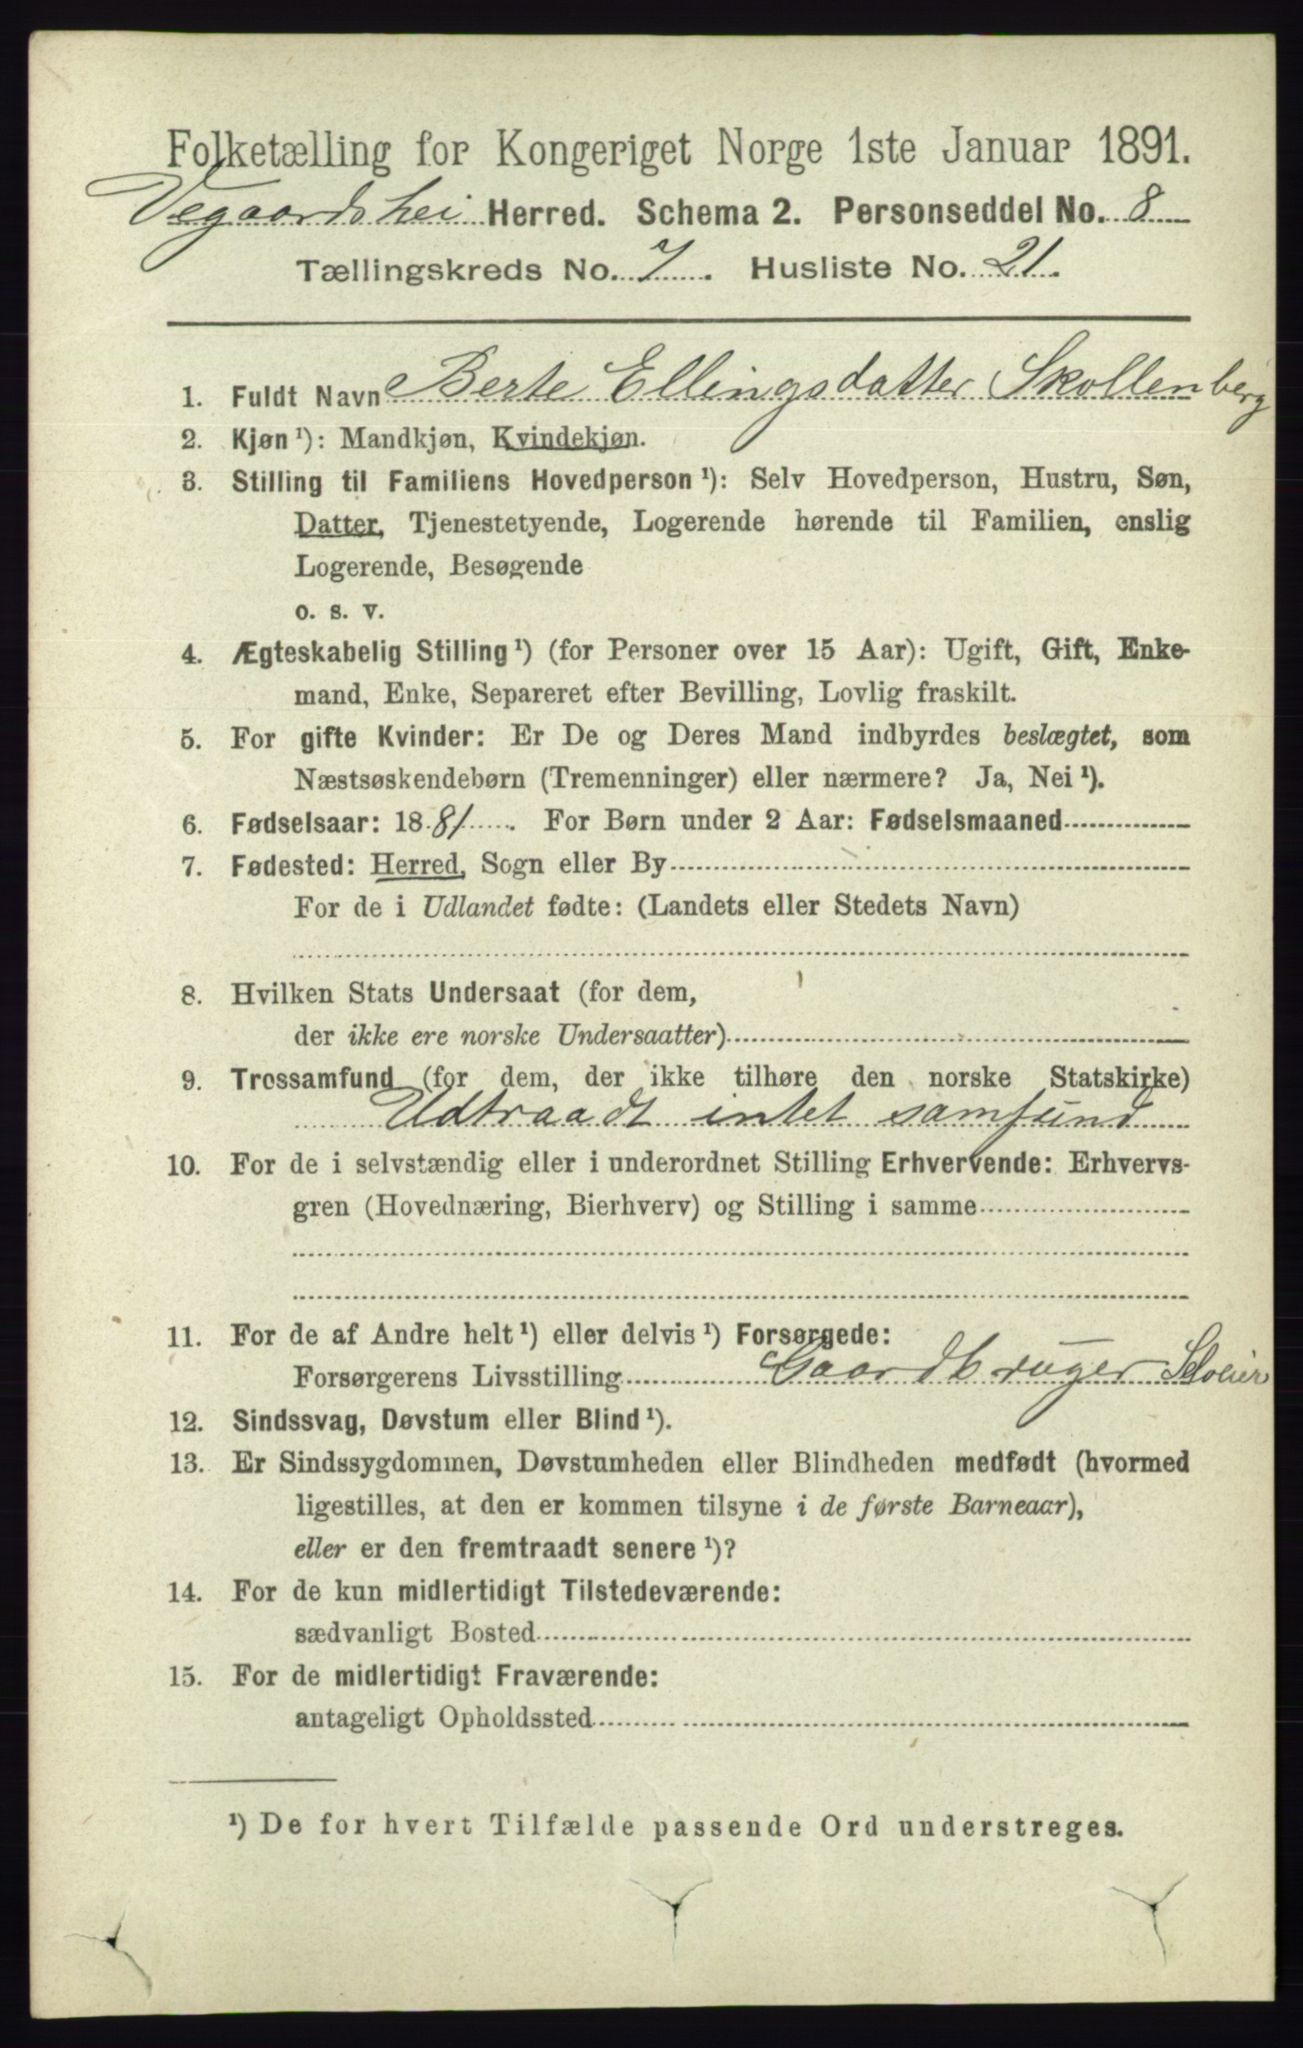 Folketælling for Kongeriget Norge 1ste Januar 1891.
Vegaardshei Herred. Schema 2. Personseddel No. 8
Tællingskreds No. 7. Husliste No. 21.
1. Fuldt Navn Berte Ellingsdatter Skollenberg
2. Kjøn¹): Mandkjøn, Kvindekjøn.
3. Stilling til Familiens Hovedperson¹): Selv Hovedperson, Hustru, Søn,
Datter, Tjenestetyende, Logerende hørende til Familien, enslig
Logerende, Besøgende
o. s. v.
4. Ægteskabelig Stilling¹) (for Personer over 15 Aar): Ugift, Gift, Enke-
mand, Enke, Separeret efter Bevilling, Lovlig fraskilt.
5. For gifte Kvinder: Er De og Deres Mand indbyrdes beslægtet, som
Næstsøskendebørn (Tremenninger) eller nærmere? Ja, Nei¹).
6. Fødselsaar: 1881. For Børn under 2 Aar: Fødselsmaaned
7. Fødested: Herred, Sogn eller By
For de i Udlandet fødte: (Landets eller Stedets Navn)
8. Hvilken Stats Undersaat (for dem,
der ikke ere norske Undersaatter)
9. Trossamfund (for dem, der ikke tilhøre den norske Statskirke)
Udtraadt intet samfund
10. For de i selvstændig eller i underordnet Stilling Erhvervende: Erhvervs-
gren (Hovednæring, Bierhverv) og Stilling i samme
11. For de af Andre helt¹) eller delvis¹) Forsørgede:
Forsørgerens Livsstilling Gaardbruger
12. Sindssvag, Døvstum eller Blind¹).
13. Er Sindssygdommen, Døvstumheden eller Blindheden medfødt (hvormed
ligestilles, at den er kommen tilsyne i de første Barneaar),
eller er den fremtraadt senere¹)?
14. For de kun midlertidigt Tilstedeværende:
sædvanligt Bosted
15. For de midlertidigt Fraværende:
antageligt Opholdssted
¹) De for hvert Tilfælde passende Ord understreges.